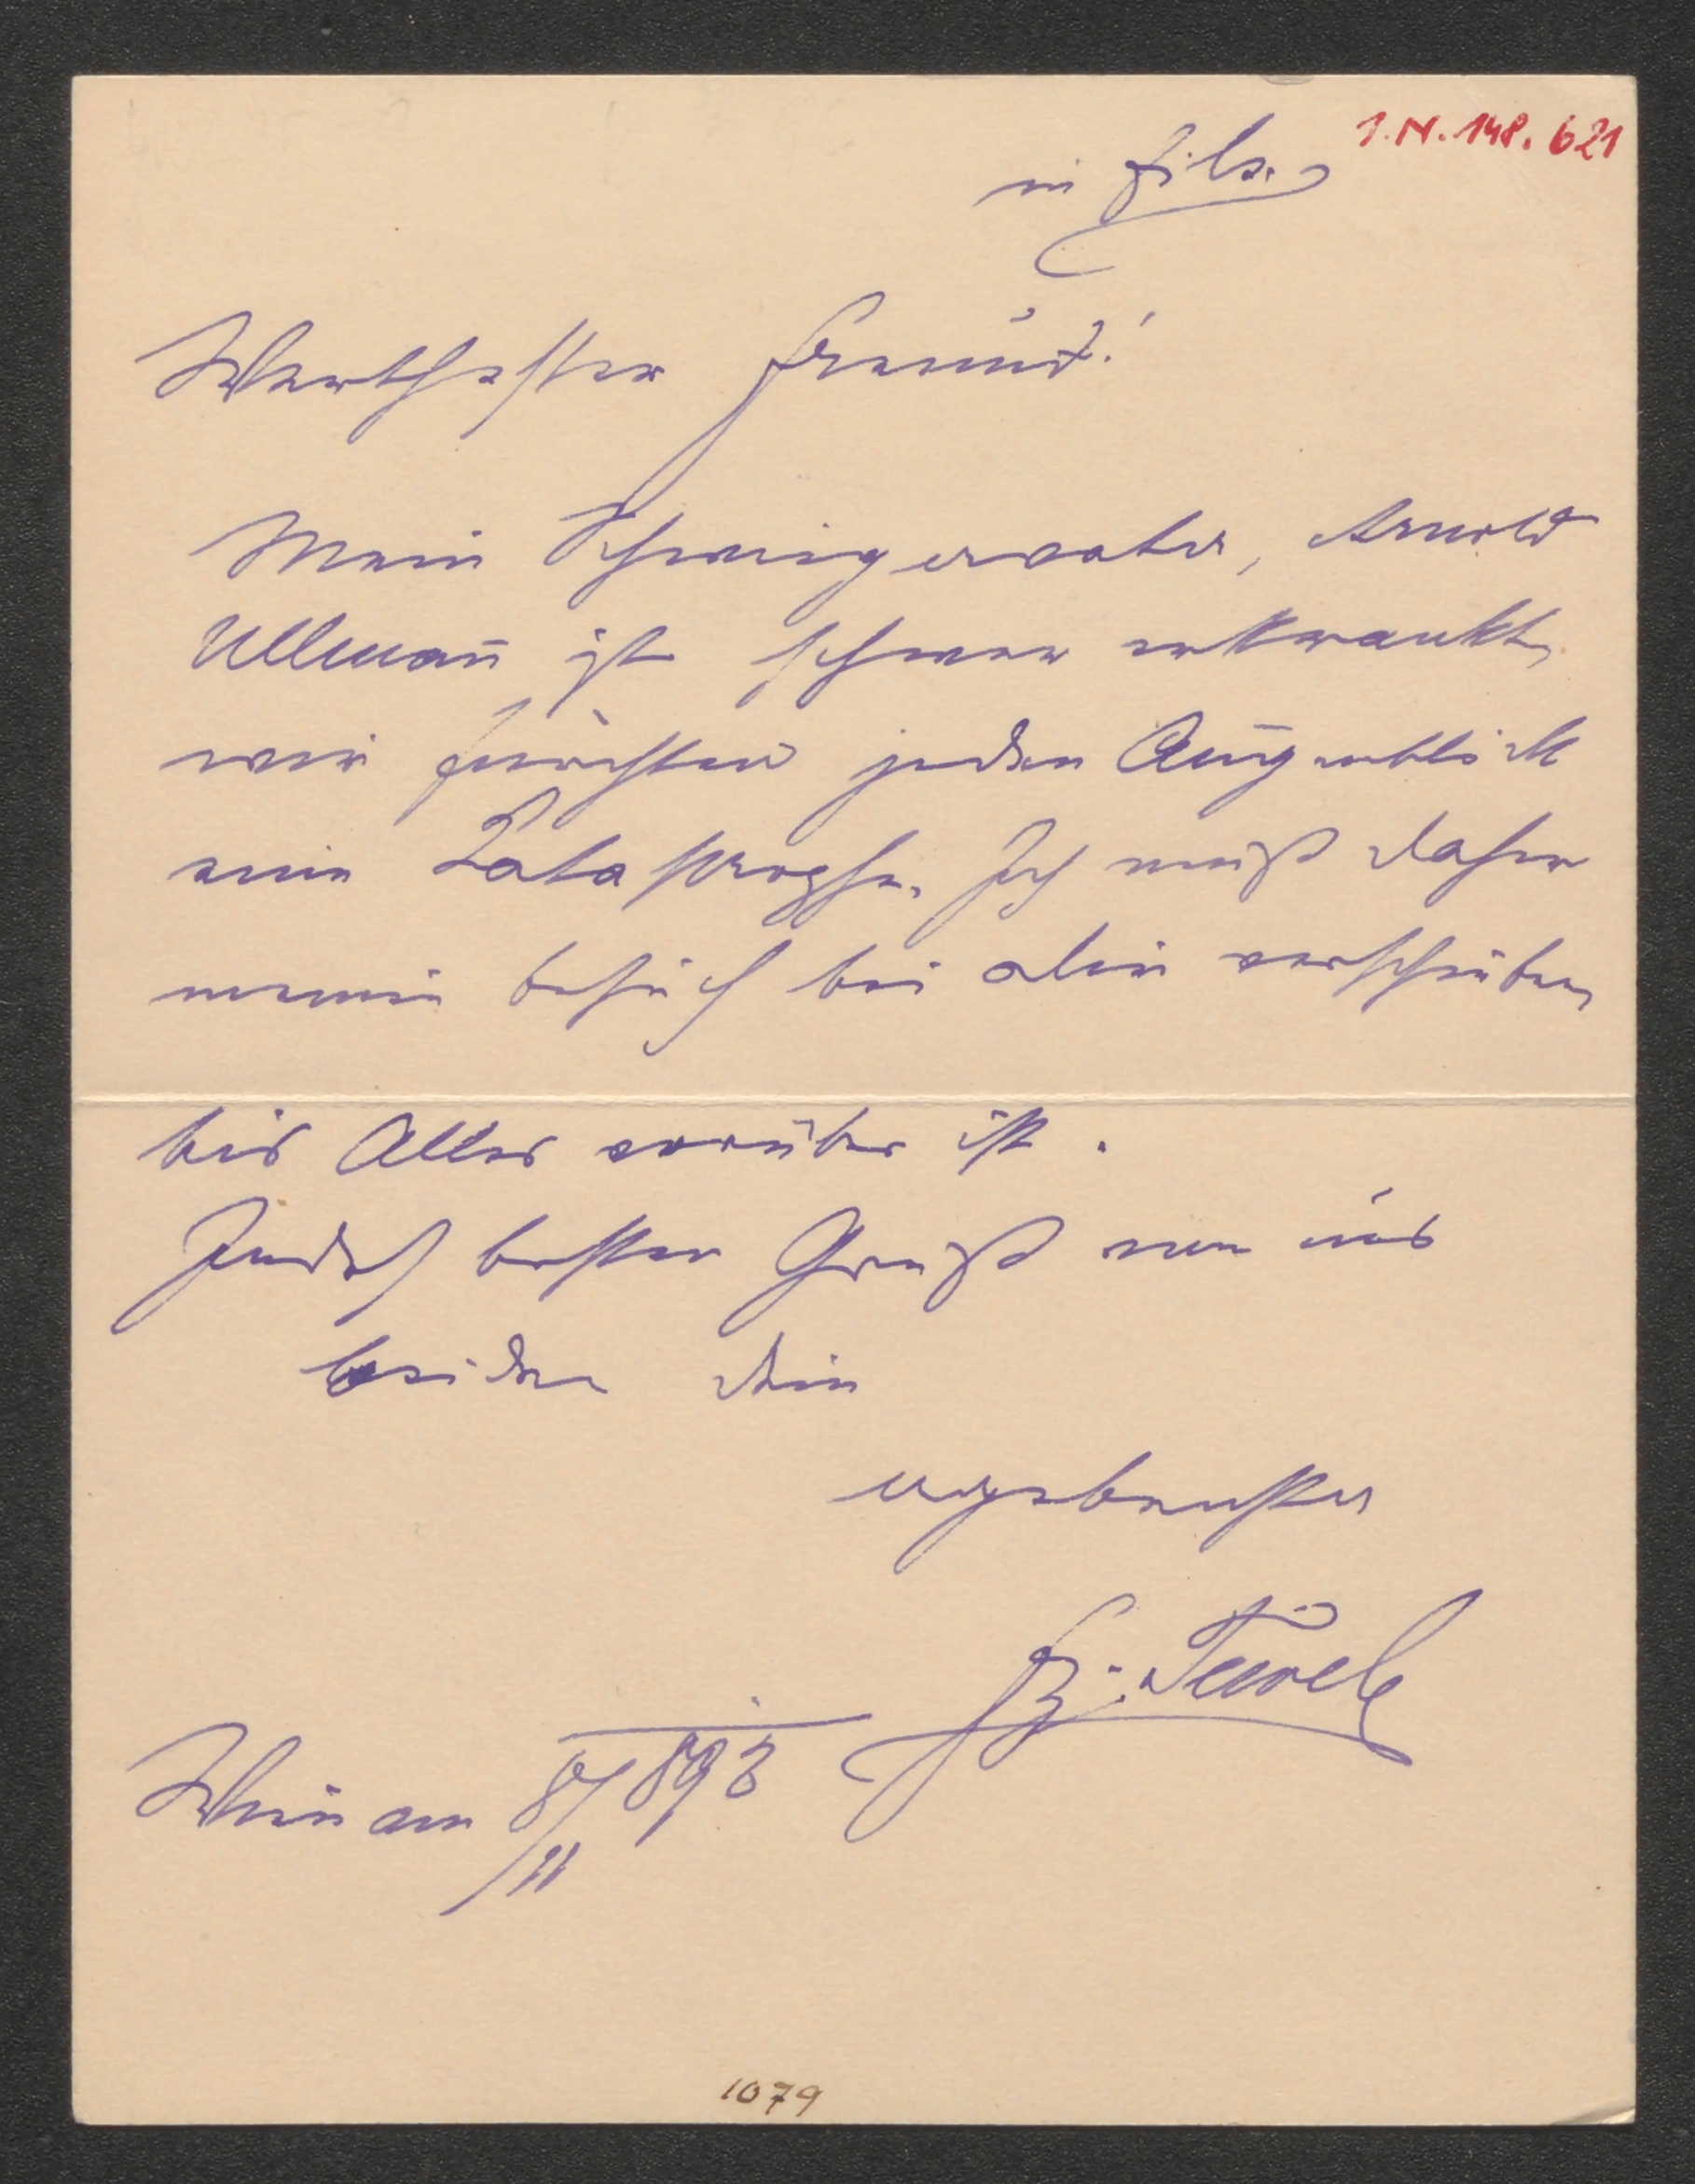 I.N. 148.621
in Eile.
Werthester Freund!
Mein Schwiegervater, Arnold
Ullmann̄ ist schwer erkrankt,
wir fürchten jeden Augenblick
eine Katastrophe. Ich muß daher
meinen Besuch bei dir verschieben,
bis Alles vorüber ist.
Indeß besten Gruß von uns
beiden dein
ergebenster
Wien am 8/11 893
1079